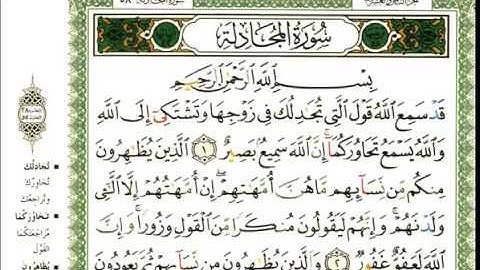 سُورَةُ المُجَادلَة
بِسْمِ اللَّهِ الرَّحْمَٰنِ الرَّحِيمِ
قَدْ سَمِعَ اللَّهُ قَوْلَ الَّتِي تُجَٰدِلُكَ فِي زَوْجِهَا وَتَشْتَكِيٓ إِلَى اللَّهِ
وَاللَّهُ يَسْمَعُ تَحَاوُرَكُمَآ ۚ إِنَّ اللَّهَ سَمِيعٌۢ بَصِيرٌ ١ الَّذِينَ يُظَٰهِرُونَ
مِنكُم مِّن نِّسَآئِهِم مَّا هُنَّ أُمَّهَٰتِهِمْ ۖ إِنْ أُمَّهَٰتُهُمْ إِلَّا الَّٰٓـِٔي
وَلَدْنَهُمْ ۚ وَإِنَّهُمْ لَيَقُولُونَ مُنكَرًا مِّنَ الْقَوْلِ وَزُورًا ۚ وَإِنَّ
اللَّهَ لَعَفُوٌّ غَفُورٌ ٢ وَالَّذِينَ يُظَٰهِرُونَ مِن نِّسَآئِهِمْ ثُمَّ يَعُودُونَ
تُجَادِلُكَ
تُحَاوِرُكَ
وَتُرَاجِعُكَ
تَحَاوُرَكُمَا
مُرَاجَعَتَكُمَا
القَوْلَ
يُظَاهِرُونَ